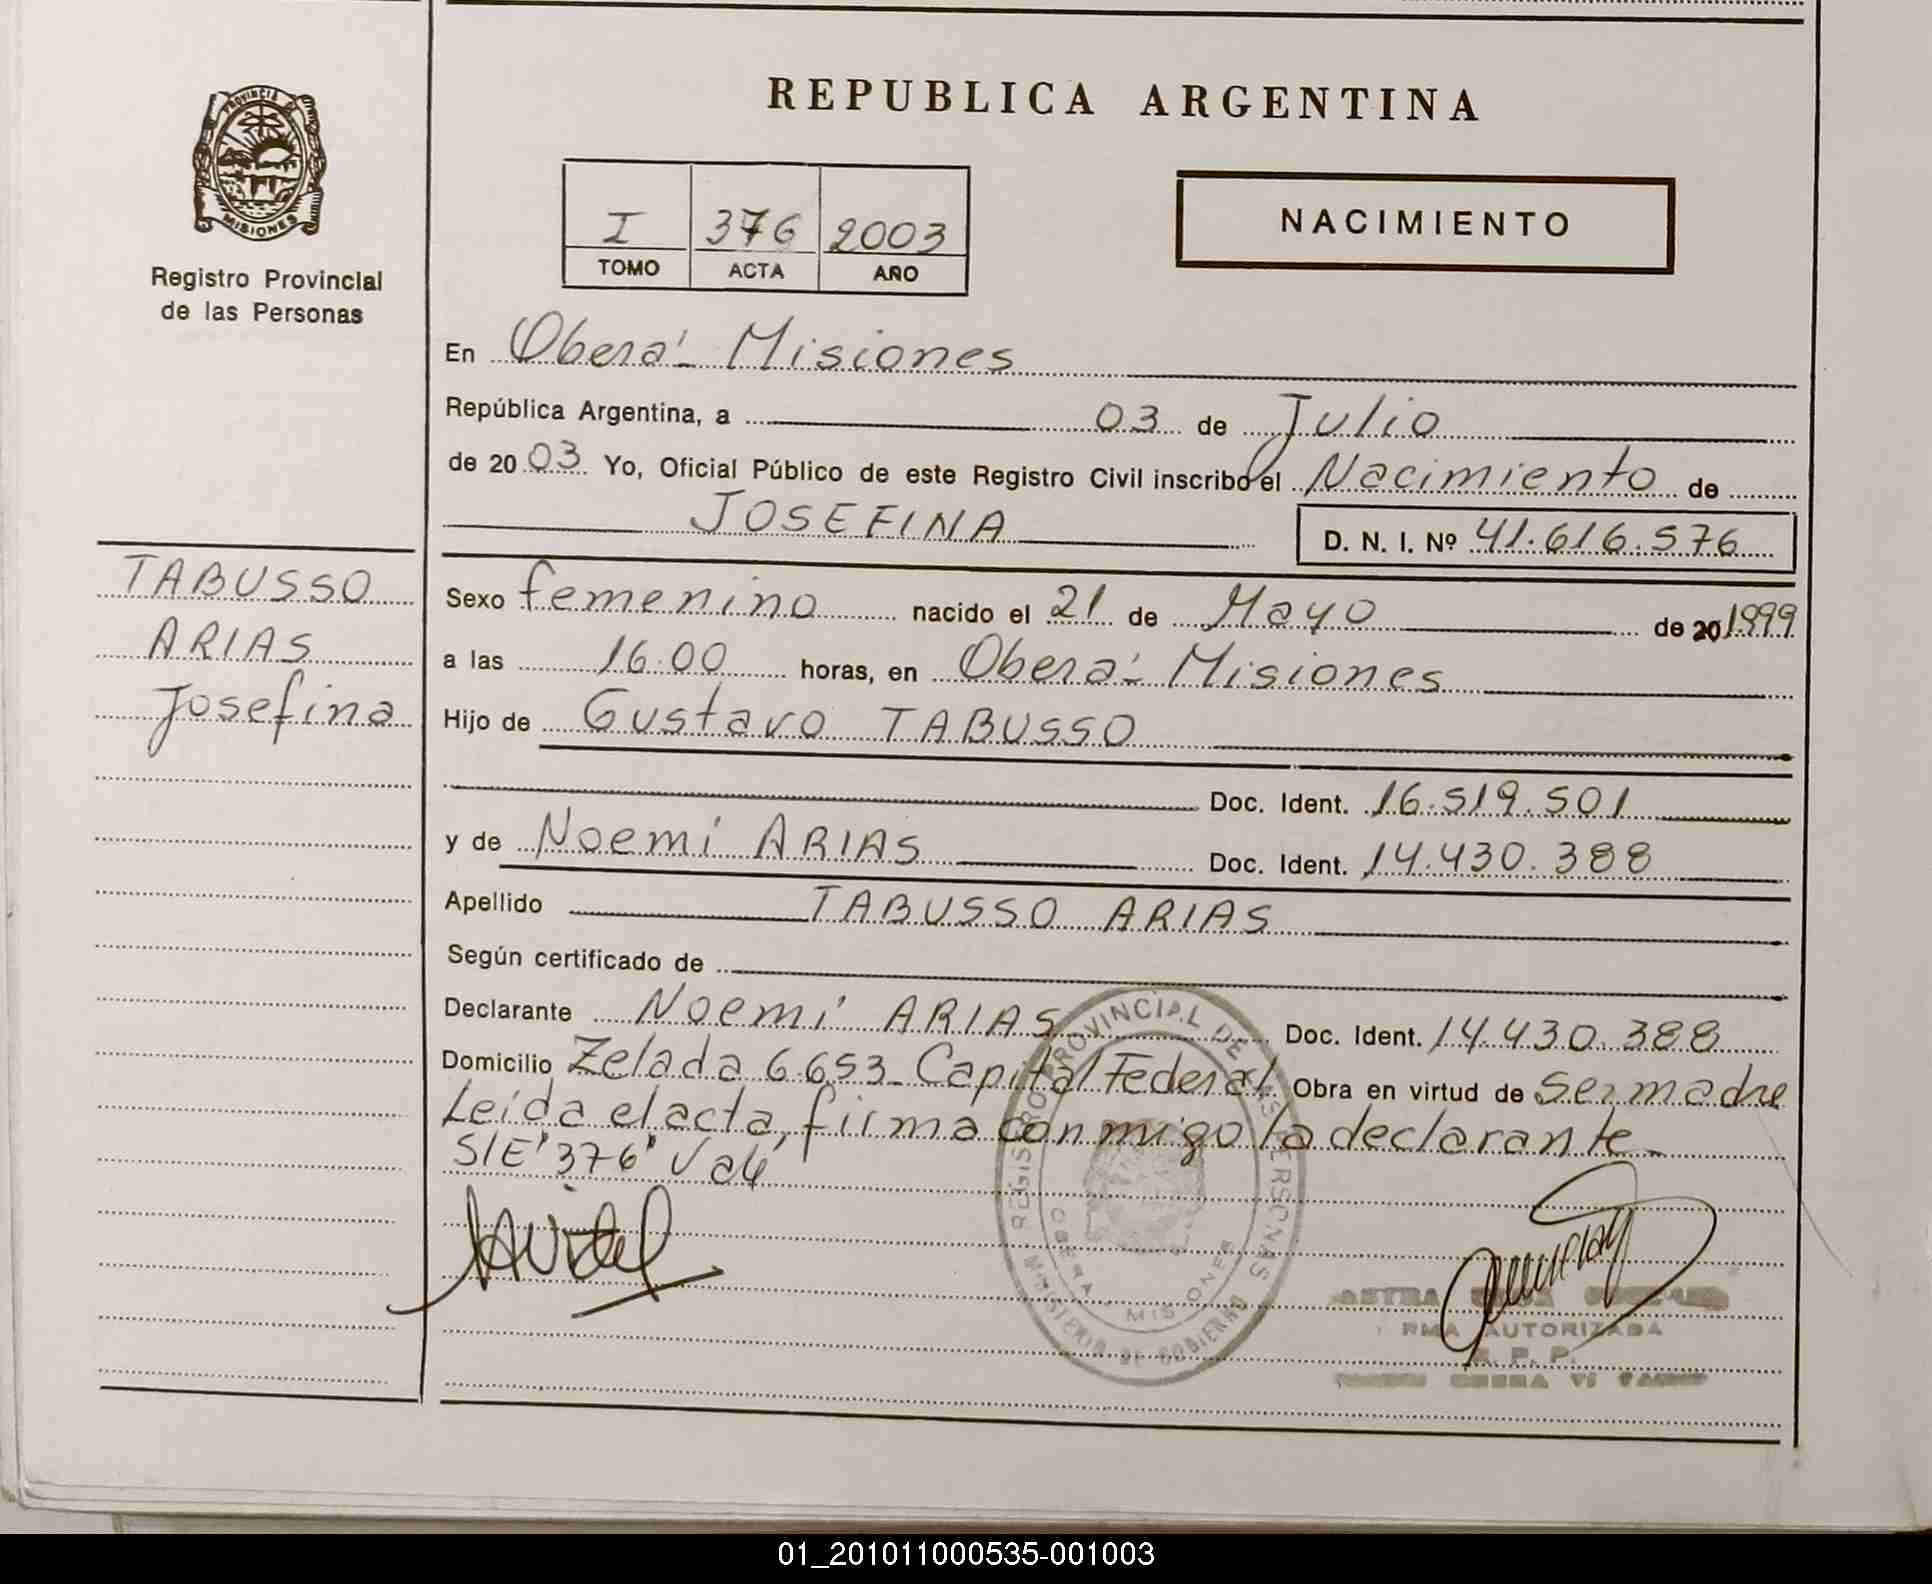 REPUBLICA ARGENTINA
PROVINCIA DE
MISIONES
Registro Provincial
de las Personas
I 376 2003
TOMO ACTA AÑO
NACIMIENTO
En Oberá - Misiones
República Argentina, a 03 de Julio
de 2003 Yo, Oficial Público de este Registro Civil inscribo el Nacimiento de
JOSEFINA D. N. I. Nº 41.616.576
TABUSSO
ARIAS
Josefina
Sexo femenino nacido el 21 de Mayo de 20 1999
a las 16.00 horas, en Oberá - Misiones
Hijo de Gustavo TABUSSO
Doc. Ident. 16.519.501
y de Noemí ARIAS Doc. Ident. 14.430.388
Apellido TABUSSO ARIAS
Según certificado de
Declarante Noemí ARIAS Doc. Ident. 14.430.388
Domicilio Zelada 6653 - Capital Federal Obra en virtud de Ser madre
Leída el acta, firma conmigo la declarante -
S/E "376" Vale
REGISTRO PROVINCIAL DE LAS PERSONAS
OBERA - MISIONES
MINISTERIO DE GOBIERNO
AUTORIZADA
R. P. P.
01_201011000535-001003